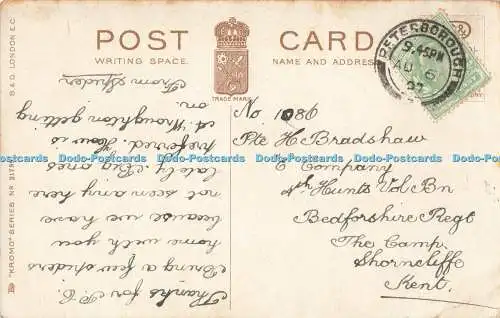 POST CARD
WRITING SPACE. NAME AND ADDRESS
TRADE MARK.
B & D. LONDON E.C.
"KROMO" SERIES. NR
PETERBOROUGH
9.45PM
AU 6
07
Thanks for P.C.
Bring a few spiders
home with you
because we have
not seen any here
lately. Big ones
preferred. How is
A. Wroughton getting
on.
From Spider
No. 1086
Pte H. Bradshaw
C Company
4th Hunts Vol Bn
Bedfordshire Regt
The Camp
Shorncliffe
Kent.
Dodo-Postcards Dodo-Postcards Dodo-Postcards Dodo-Postcards Dodo-Postcards